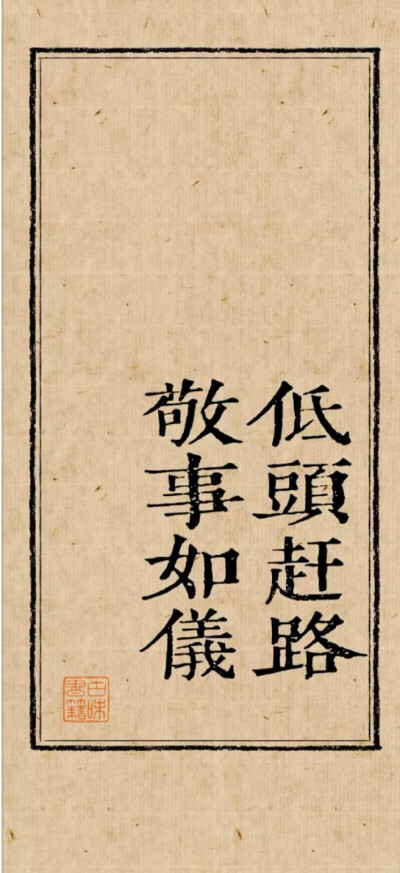 低頭赶路
敬事如儀
古味
書籍